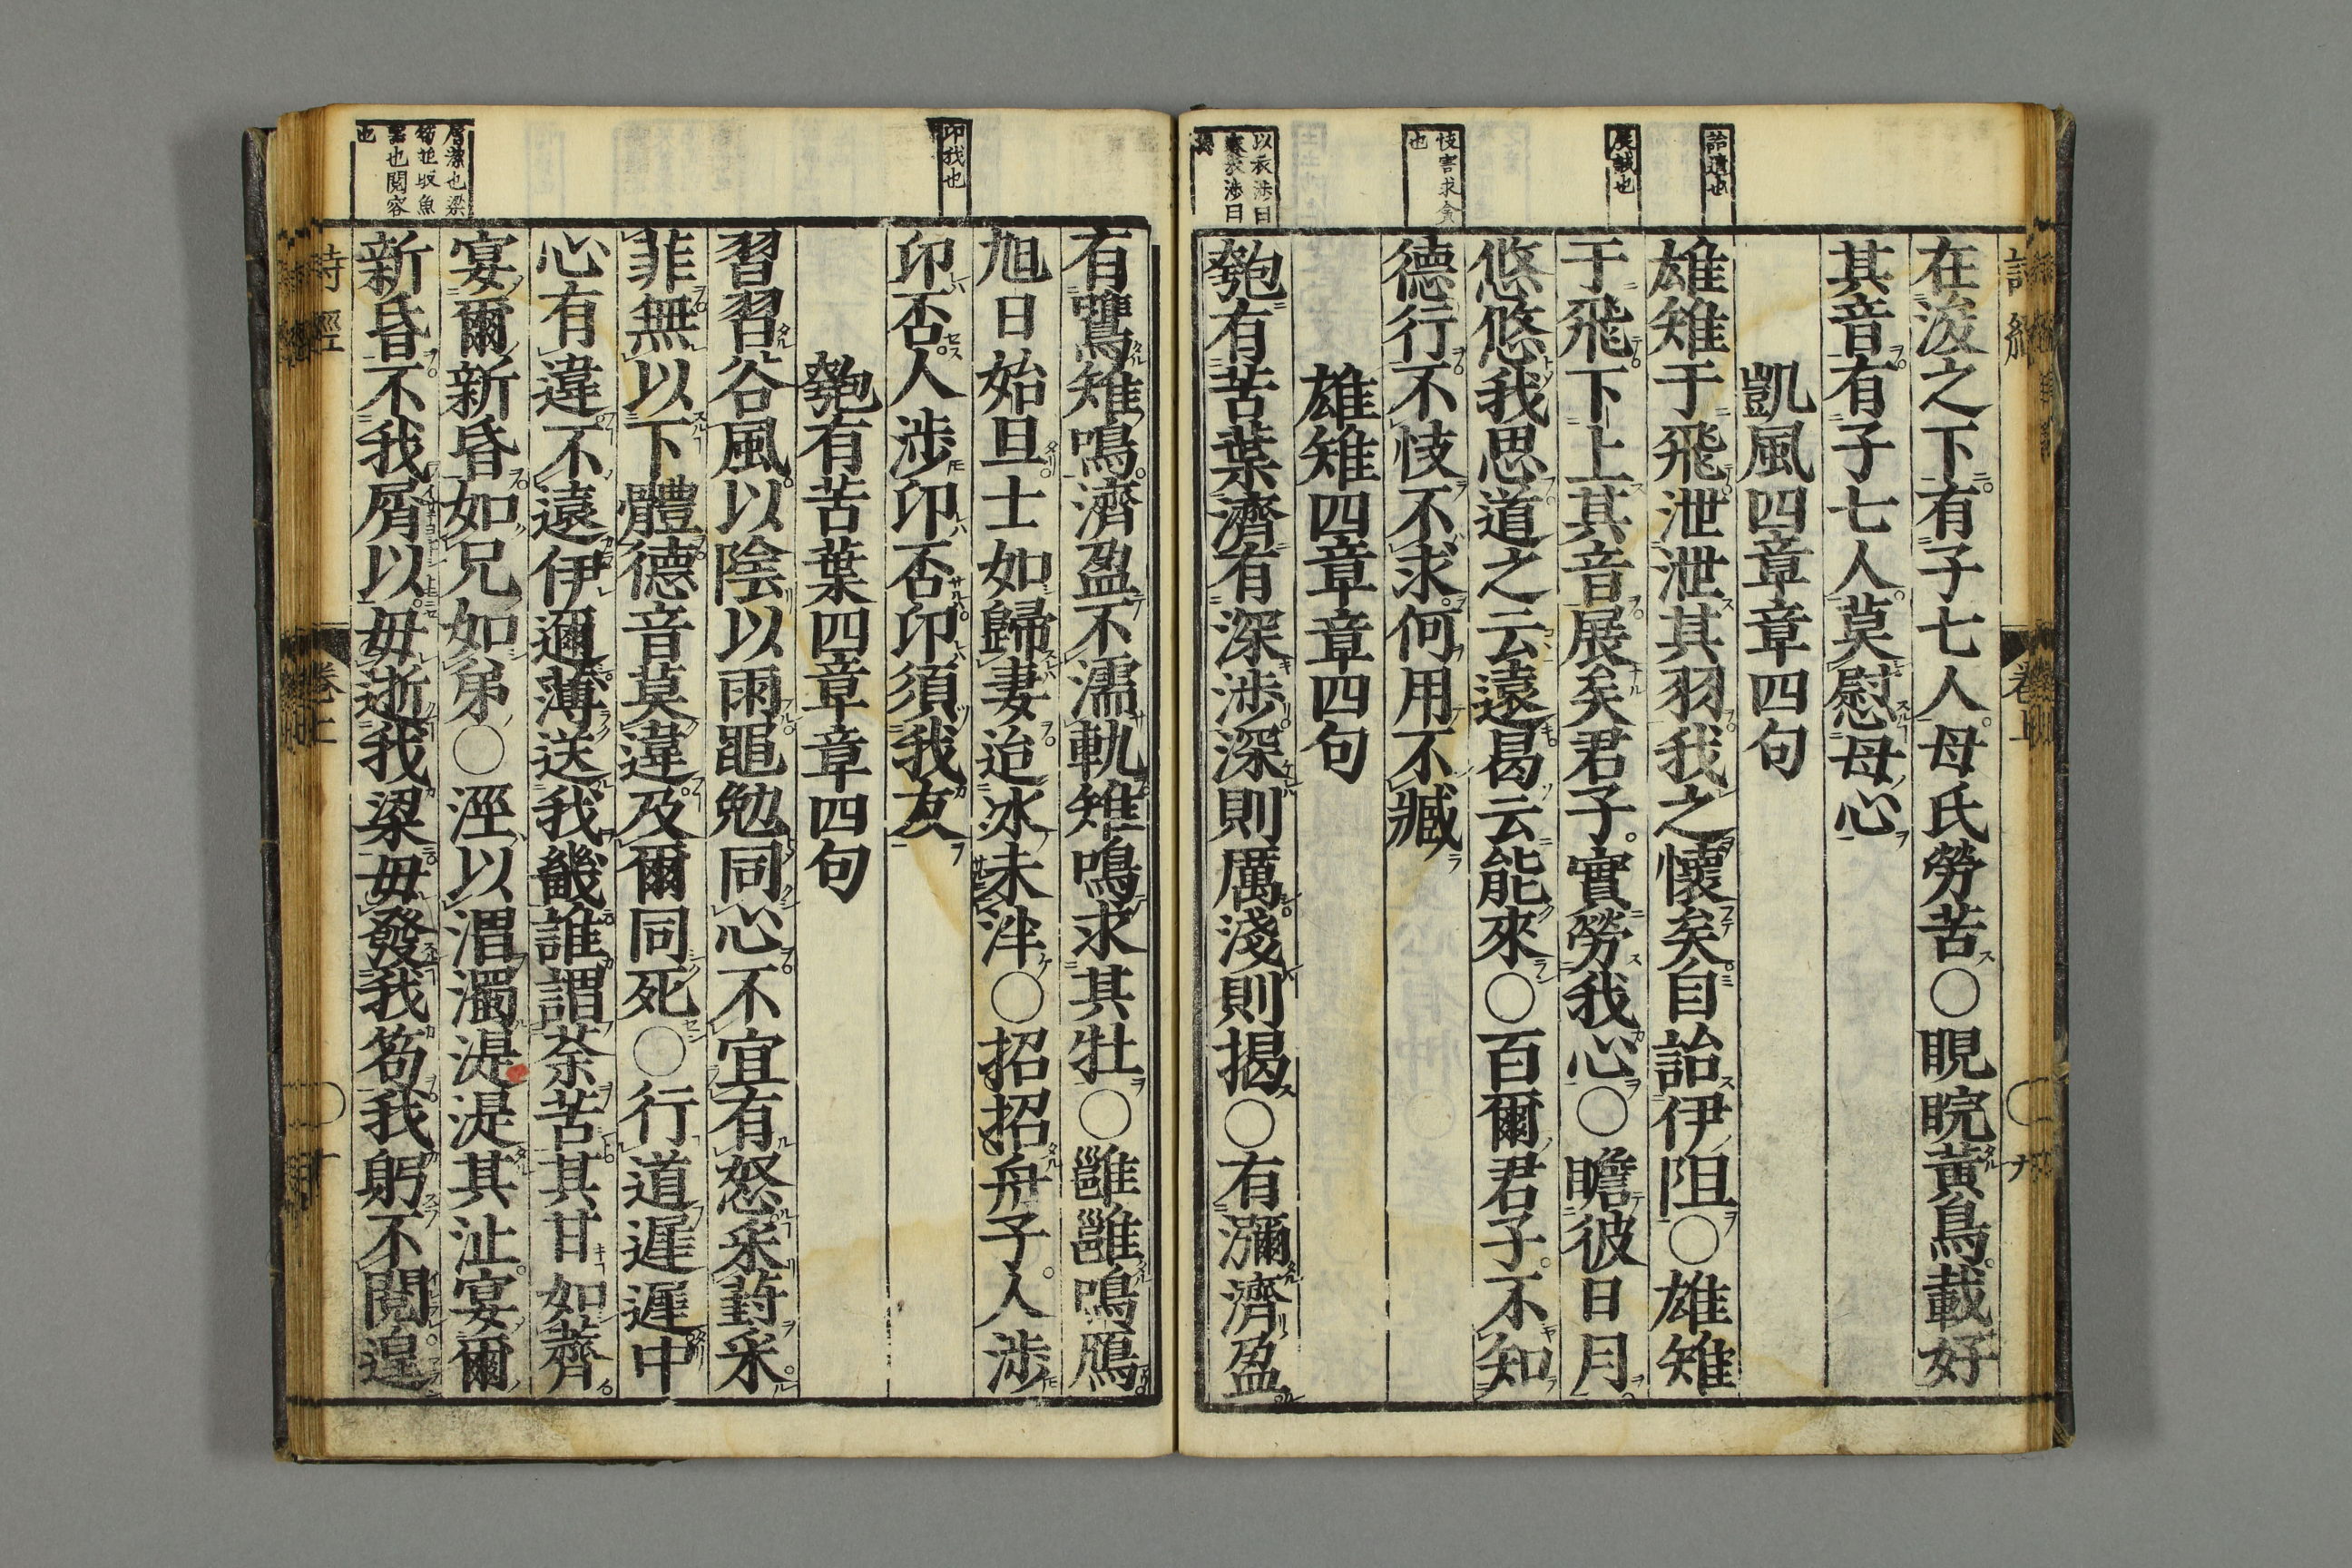 詩經
卷上
九
詒遺也
展誠也
忮害求貪
也
以衣涉曰
褰衣涉曰
在浚之下有子七人母氏勞苦○睍睆黃鳥載好
其音有子七人莫慰母心
凱風四章章四句
雄雉于飛泄泄其羽我之懷矣自詒伊阻○雄雉
于飛下上其音展矣君子實勞我心○瞻彼日月
悠悠我思道之云遠曷云能來○百爾君子不知
德行不忮不求何用不臧
雄雉四章章四句
匏有苦葉濟有深涉深則厲淺則揭○有瀰濟盈
卬我也
屑潔也梁
笱並取魚
器也閱容
也
有鷕雉鳴濟盈不濡軌雉鳴求其牡○雝雝鳴鴈
旭日始旦士如歸妻迨冰未泮○招招舟子人涉
卬否人涉卬否卬須我友
匏有苦葉四章章四句
習習谷風以陰以雨黽勉同心不宜有怒采葑采
菲無以下體德音莫違及爾同死○行道遲遲中
心有違不遠伊邇薄送我畿誰謂荼苦其甘如薺
宴爾新昏如兄如弟○涇以渭濁湜湜其沚宴爾
新昏不我屑以毋逝我梁毋發我笱我躬不閱遑
詩經
卷上
十